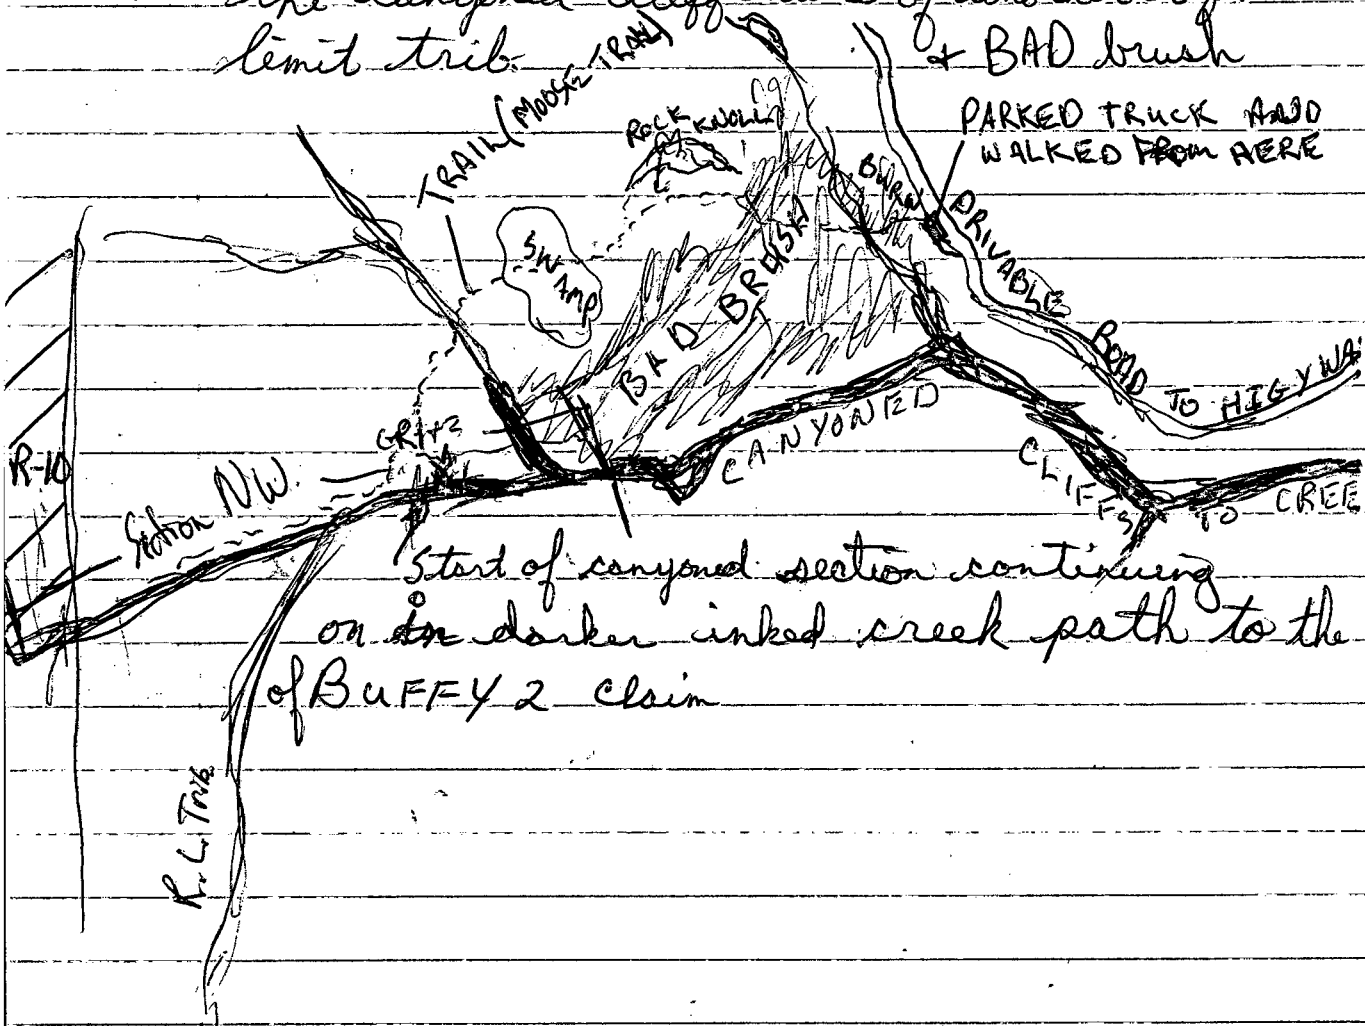 the canyoned
limit trib.
& BAD brush
TRAIL (MOOSE TRAIL)
ROCK KNOLL
PARKED TRUCK AND
WALKED FROM HERE
BURN
DRIVABLE ROAD TO HIGYWA
SWAMP
BAD BRUSH
R-10
Section NW.
CANYONED
CLIFFS TO CREE
Start of canyoned section continuing
on in darker inked creek path to the
of BUFFY 2 claim
R.L. Trib.